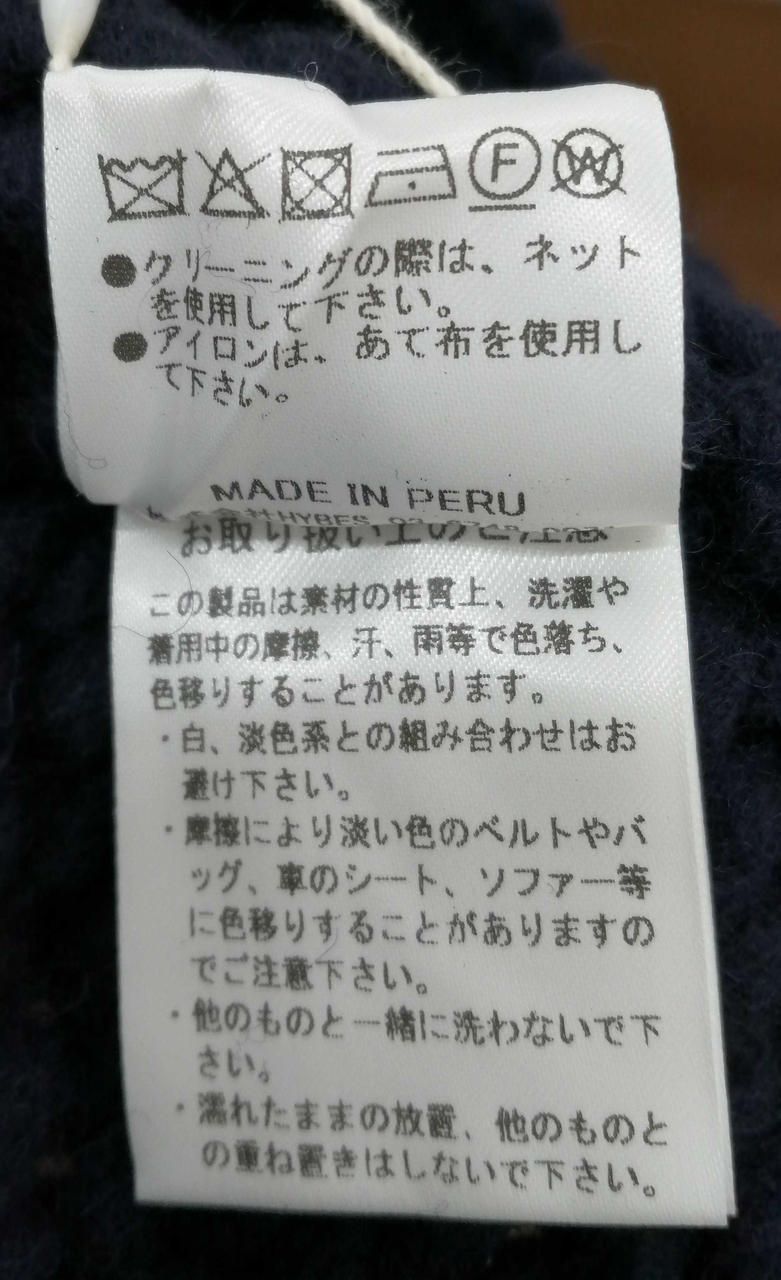 F W
●クリーニングの際は、ネット
を使用して下さい。
●アイロンは、あて布を使用し
て下さい。
MADE IN PERU
会社HYBES
お取り扱い上のご注意
この製品は素材の性質上、洗濯や
着用中の摩擦、汗、雨等で色落ち、
色移りすることがあります。
・白、淡色系との組み合わせはお
避け下さい。
・摩擦により淡い色のベルトやバ
ッグ、車のシート、ソファー等
に色移りすることがありますの
でご注意下さい。
・他のものと一緒に洗わないで下
さい。
・濡れたままの放置、他のものと
の重ね置きはしないで下さい。